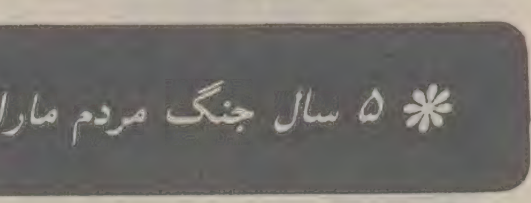 * ۵ سال جنگ مردم مارا